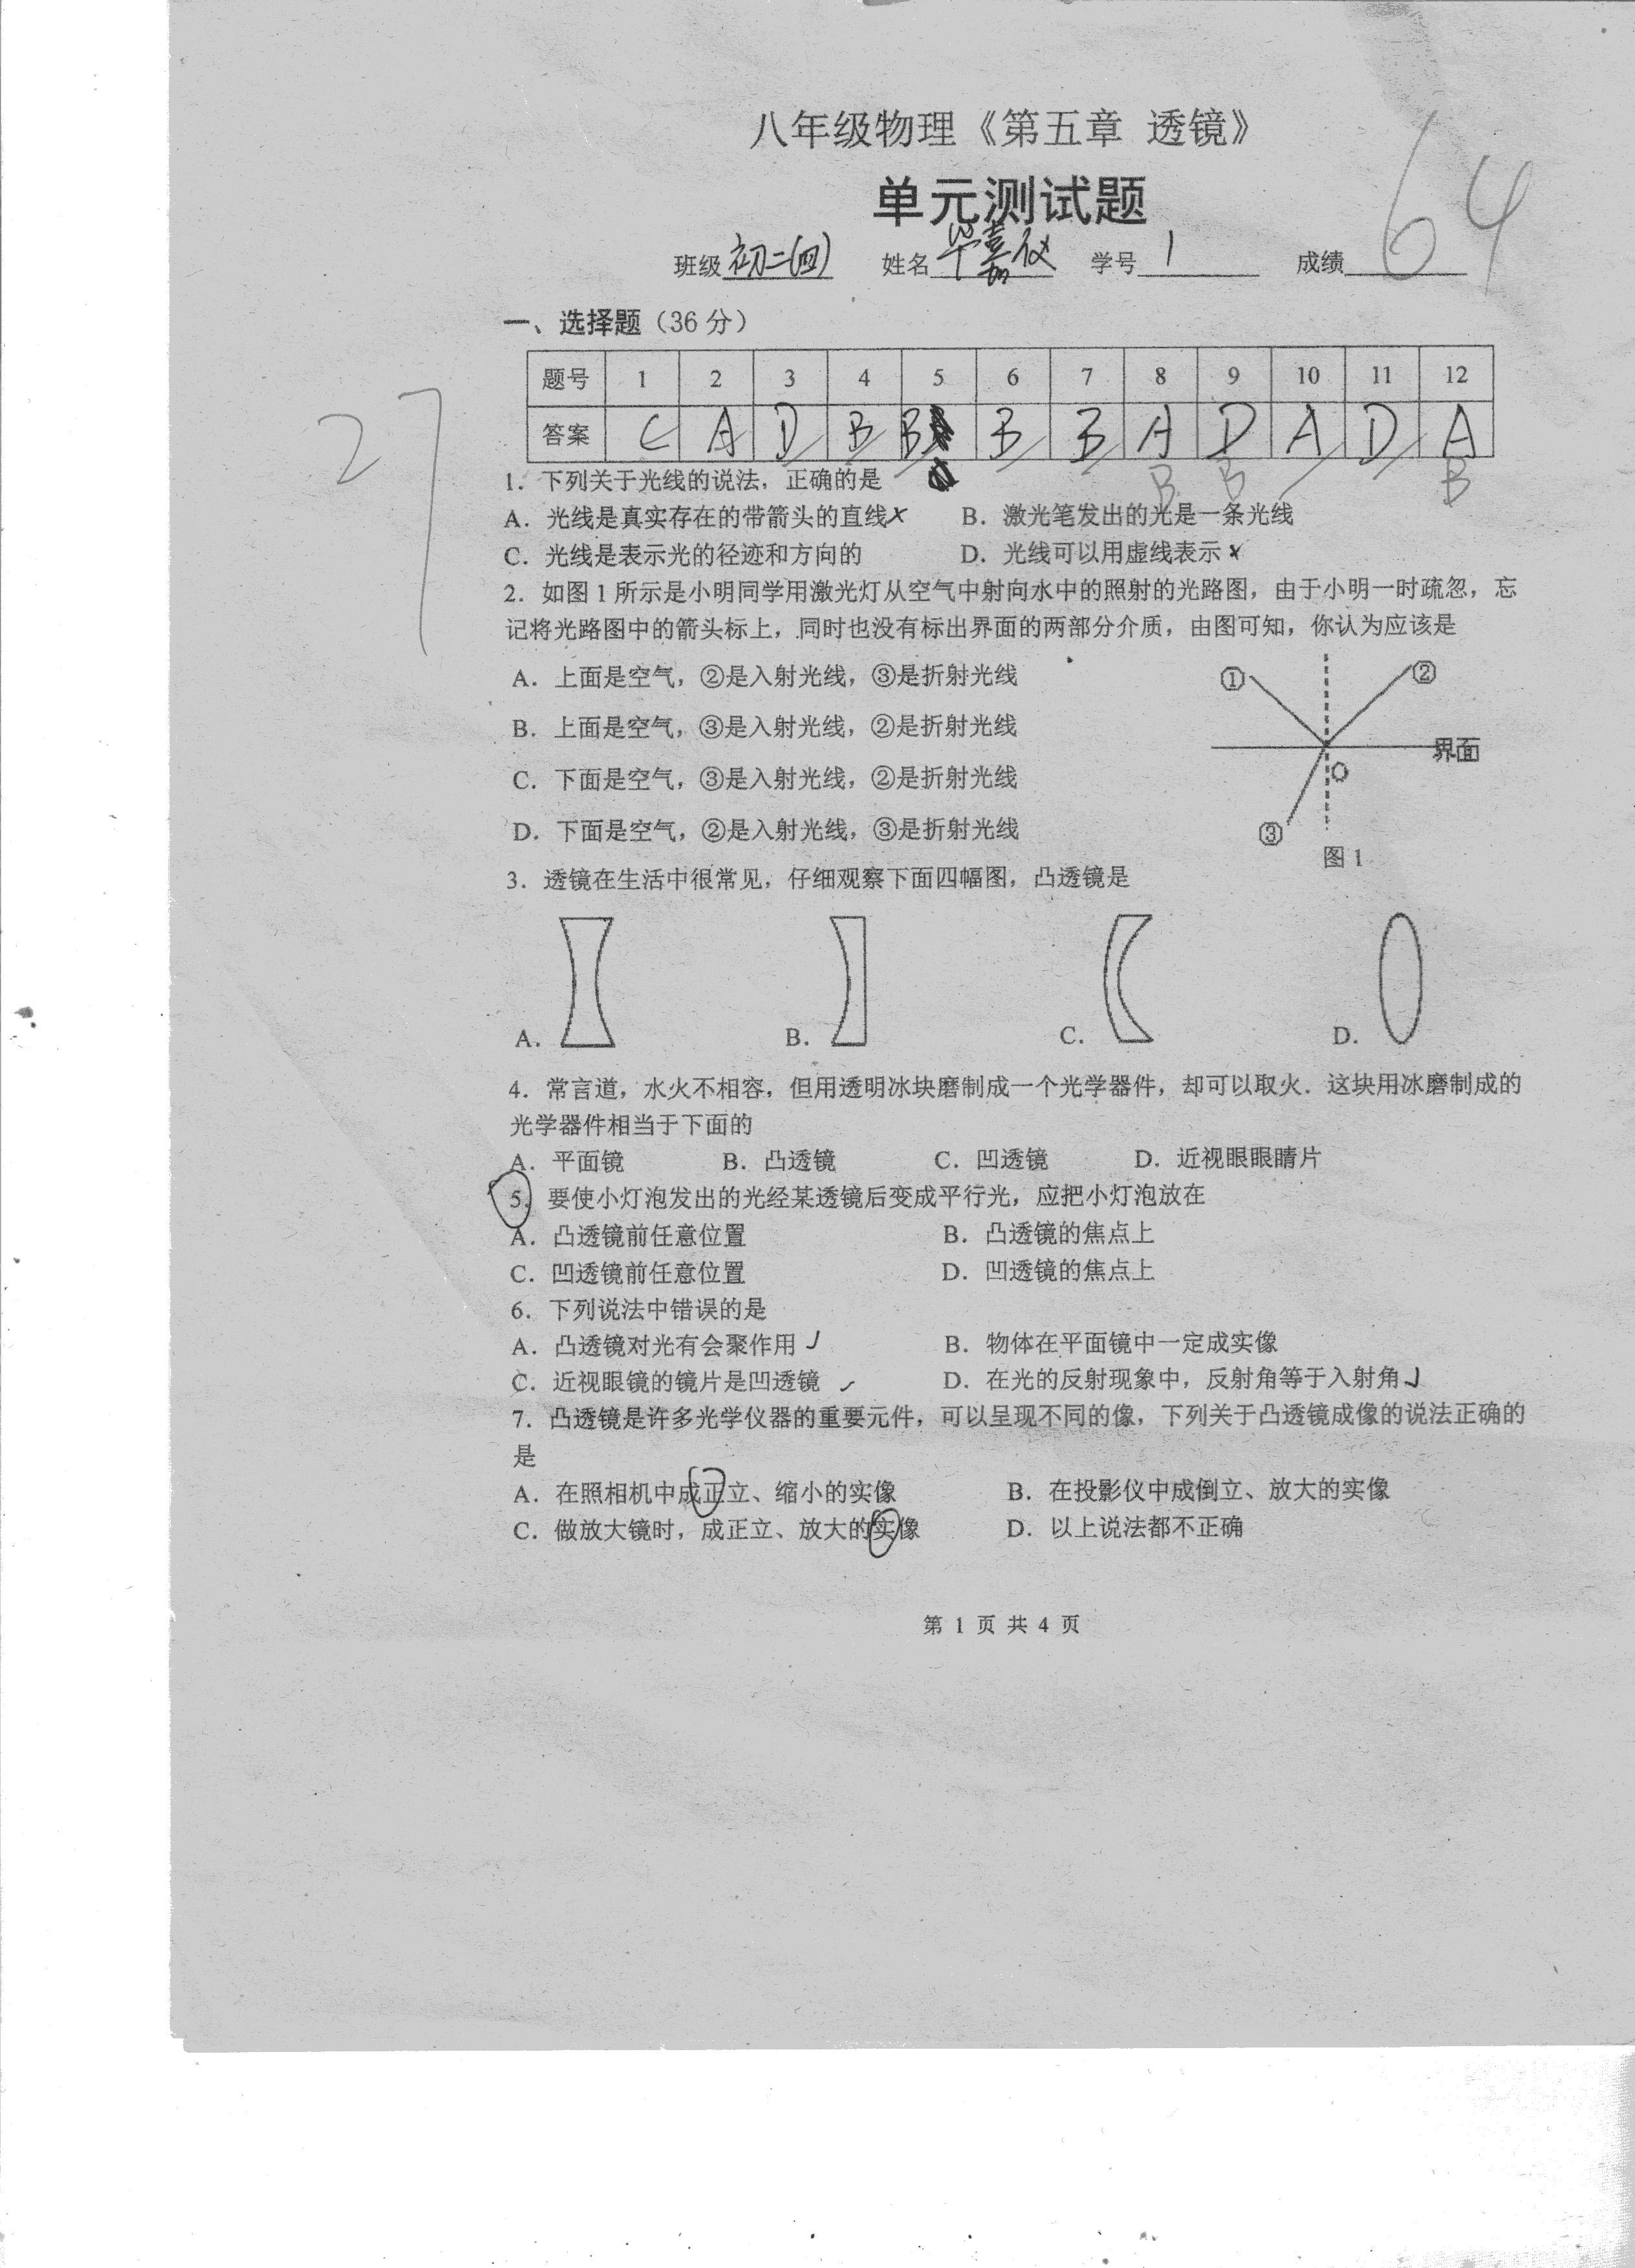 八年级物理《第五章 透镜》
单元测试题
班级 初二(四) 姓名 华嘉仪 学号 1 成绩 64
一、选择题（36 分）
27
题号 1 2 3 4 5 6 7 8 9 10 11 12
答案 C A D B B B B A D A D A
B B B
1．下列关于光线的说法，正确的是
A．光线是真实存在的带箭头的直线× B．激光笔发出的光是一条光线
C．光线是表示光的径迹和方向的 D．光线可以用虚线表示×
2．如图 1 所示是小明同学用激光灯从空气中射向水中的照射的光路图，由于小明一时疏忽，忘
记将光路图中的箭头标上，同时也没有标出界面的两部分介质，由图可知，你认为应该是
A．上面是空气，②是入射光线，③是折射光线
B．上面是空气，③是入射光线，②是折射光线
C．下面是空气，③是入射光线，②是折射光线
D．下面是空气，②是入射光线，③是折射光线
① ②
界面
O
③
图 1
3．透镜在生活中很常见，仔细观察下面四幅图，凸透镜是
A． B． C． D．
4．常言道，水火不相容，但用透明冰块磨制成一个光学器件，却可以取火．这块用冰磨制成的
光学器件相当于下面的
A．平面镜 B．凸透镜 C．凹透镜 D．近视眼眼睛片
5．要使小灯泡发出的光经某透镜后变成平行光，应把小灯泡放在
A．凸透镜前任意位置 B．凸透镜的焦点上
C．凹透镜前任意位置 D．凹透镜的焦点上
6．下列说法中错误的是
A．凸透镜对光有会聚作用 ✓ B．物体在平面镜中一定成实像
C．近视眼镜的镜片是凹透镜 ✓ D．在光的反射现象中，反射角等于入射角 ✓
7．凸透镜是许多光学仪器的重要元件，可以呈现不同的像，下列关于凸透镜成像的说法正确的
是
A．在照相机中成正立、缩小的实像 B．在投影仪中成倒立、放大的实像
C．做放大镜时，成正立、放大的实像 D．以上说法都不正确
第 1 页 共 4 页